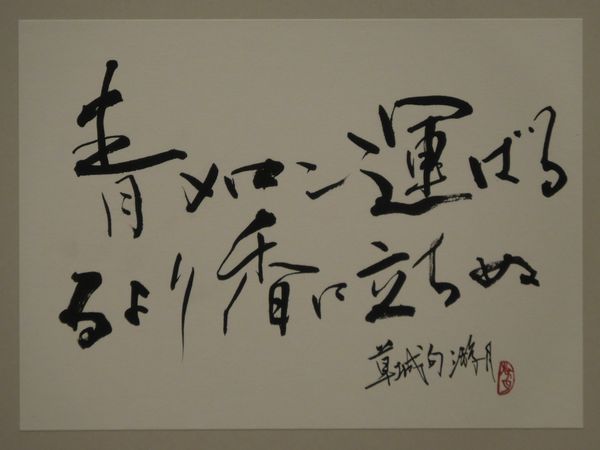 青メロン運ばる
るより香に立ちぬ
草城句 游月